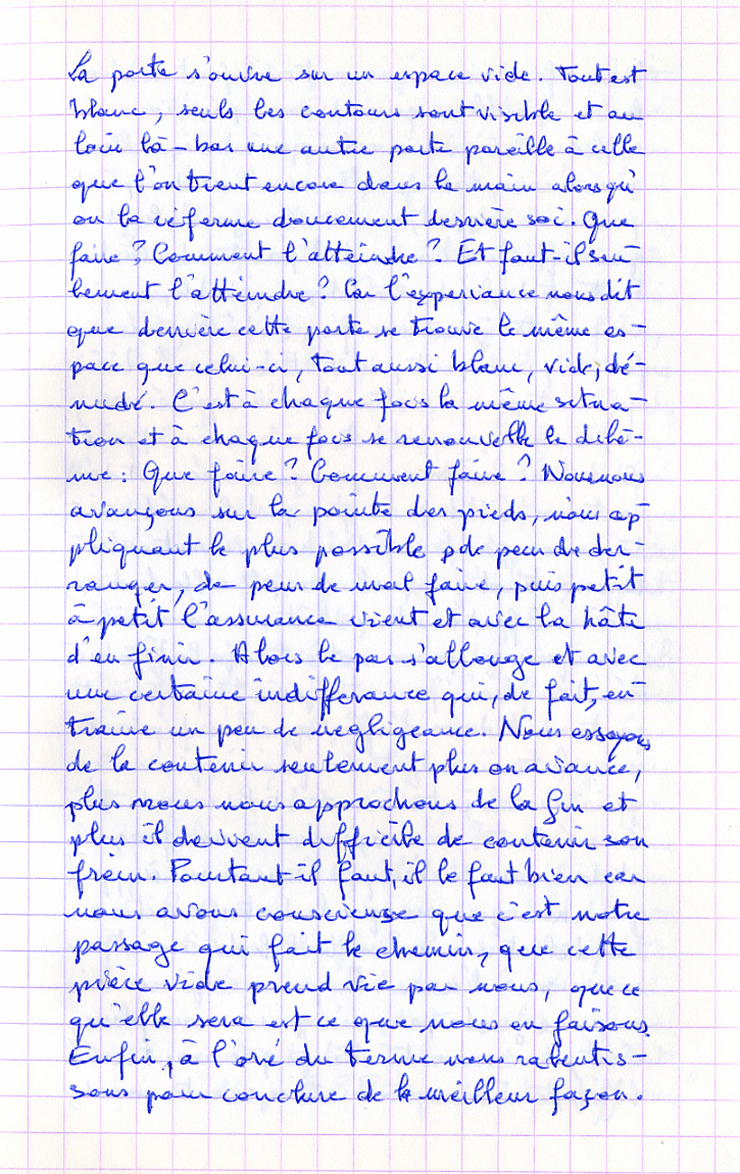 La porte s'ouvre sur un espace vide. Tout est
blanc, seuls les contours sont visible et au
loin là-bas une autre porte pareille à celle
que l'on tient encore dans la main alors qu'
on la référme doucement derrière soi. Que
faire ? Comment l'atteindre ? Et faut-il seu-
lement l'atteindre ? Car l'experiance nous dit
que derrière cette porte se trouve le même es-
pace que celui-ci, tout aussi blanc, vide, dé-
nudé. C'est à chaque fois la même situa-
tion et à chaque fois se renouvelle le dilè-
me : Que faire ? Comment faire ? Nous nous
avançons sur la pointe des pieds, nous ap-
pliquant le plus possible de peur de der-
ranger, de peur de mal faire, puis petit
à petit l'assurance vient et avec la hâte
d'en finir. Alors le pas s'allonge et avec
une certaine indifferance qui, de fait, en-
traine un peu de negligeance. Nous essayons
de la contenir seulement plus on avance,
plus nous nous approchons de la fin et
plus il devient difficile de contenir son
frein. Pourtant il faut, il le faut bien car
nous avons conscience que c'est notre
passage qui fait le chemin, que cette
pièce vide prend vie par nous, que ce
qu'elle sera est ce que nous en faisons.
Enfin, à l'oré du terme nous ralentis-
sons pour conclure de la meilleur façon.